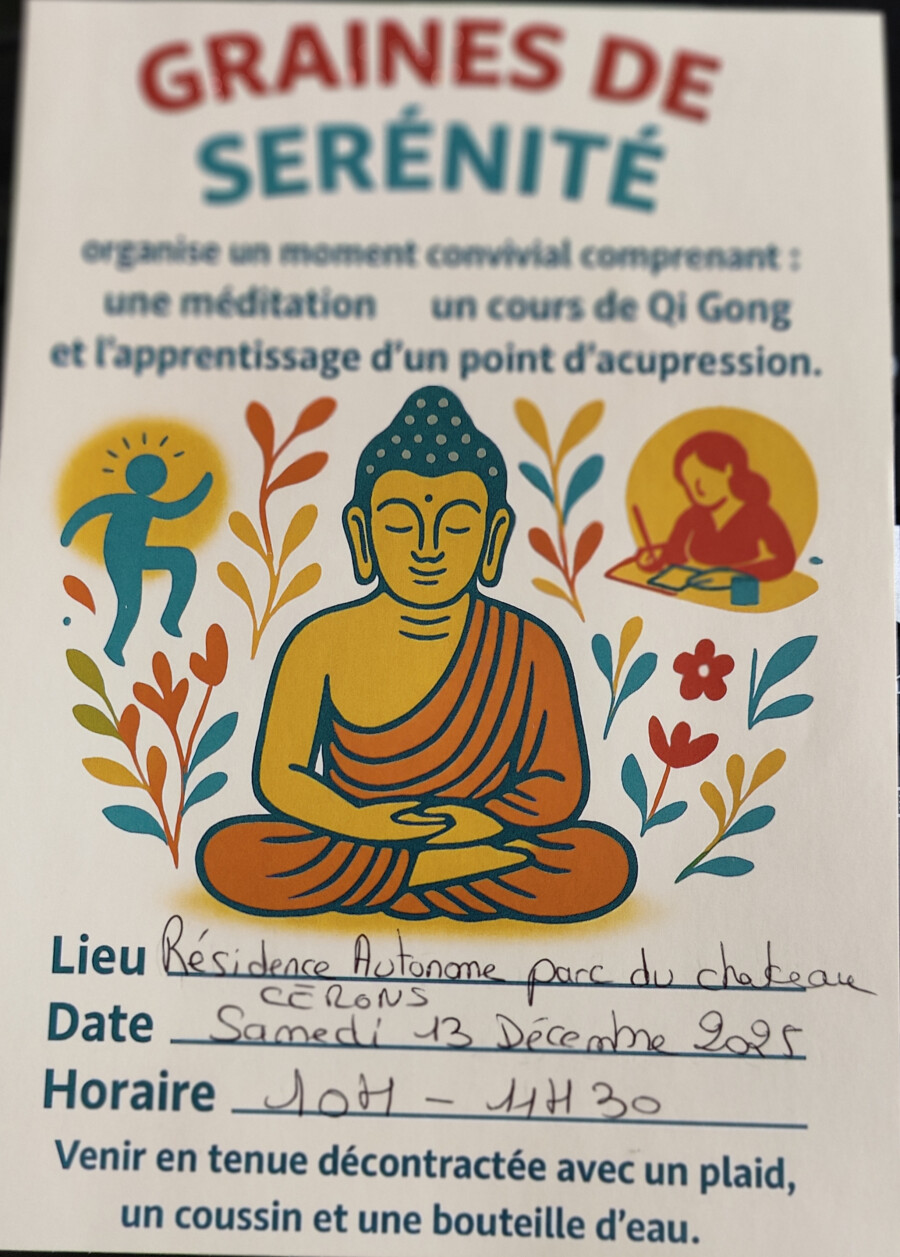 GRAINES DE
SERÉNITÉ
organise un moment convivial comprenant :
une méditation un cours de Qi Gong
et l'apprentissage d'un point d'acupression.
Lieu Résidence Autonome parc du chateau
CÉRONS
Date Samedi 13 Décembre 2025
Horaire 10H - 11H30
Venir en tenue décontractée avec un plaid,
un coussin et une bouteille d'eau.